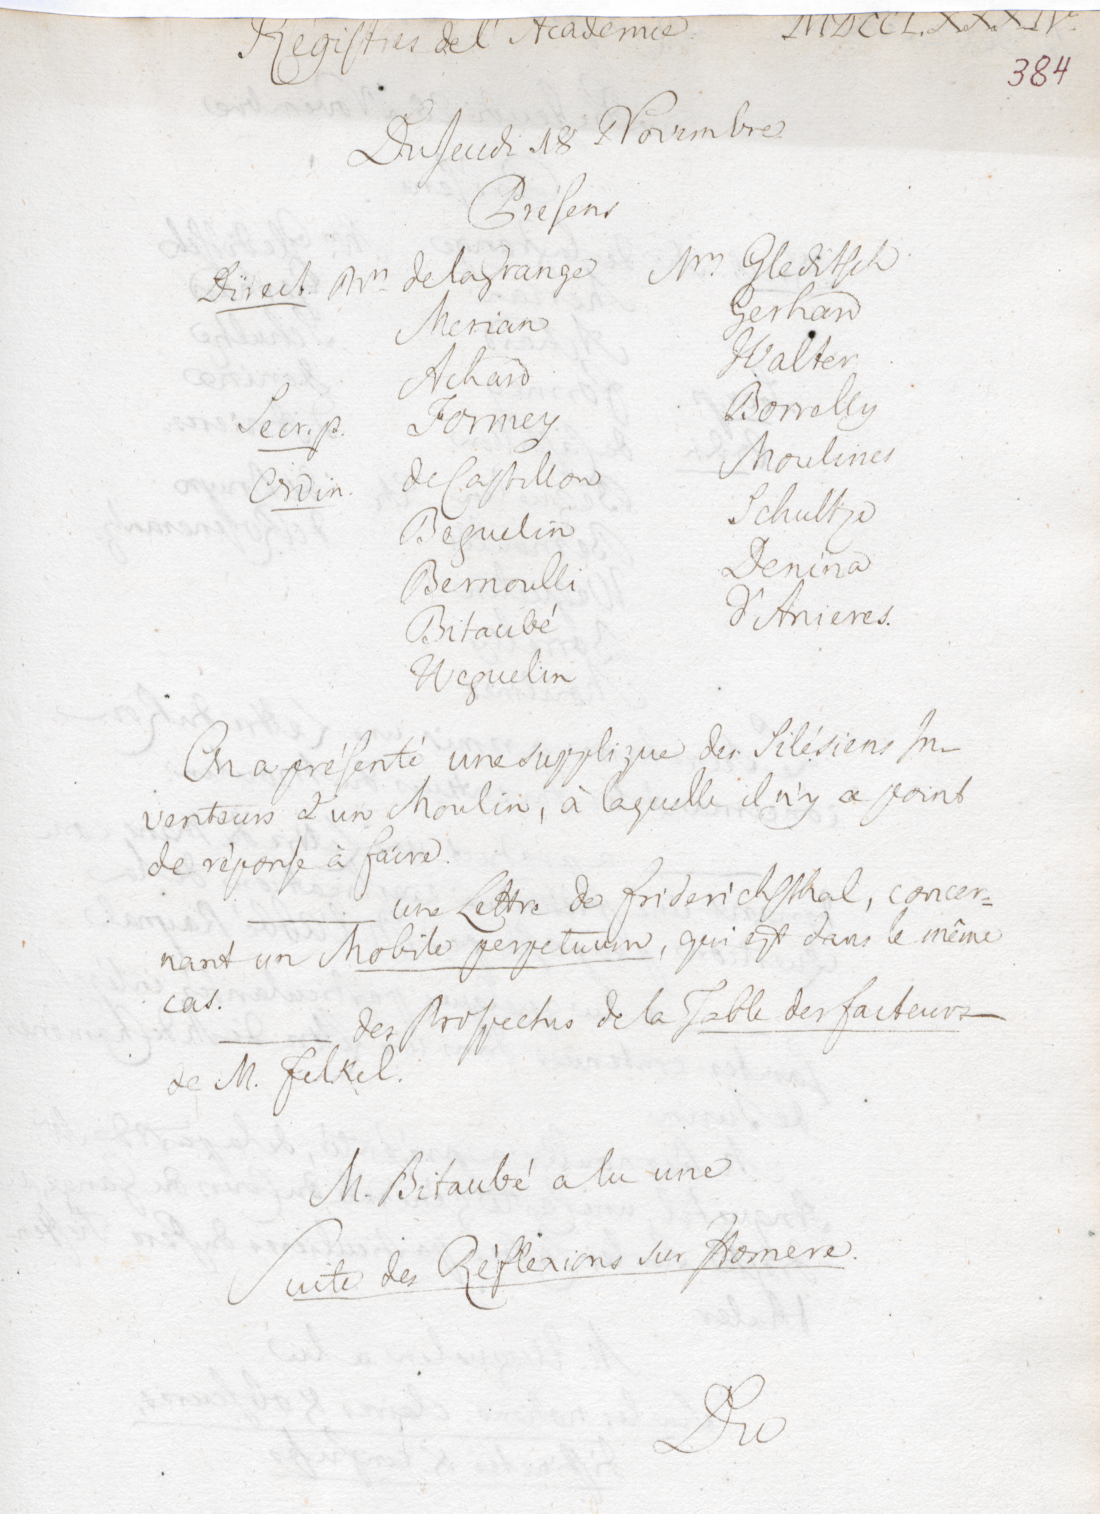 Régistres de l'Academie. MDCCLXXXIV.
384
Du Jeudi 18 Novembre
Présens
Direct. Mrs. de la Grange Mrs. Gleditsch
Merian Gerhard
Achard Walter
Secr. p. Formey Borrelly
Ordin. de Castillon Moulines
Beguelin Schultze
Bernoulli Denina
Bitaubé d'Anieres.
Weguelin
On a présenté une supplique des Silésiens In-
venteurs d'un Moulin, à laquelle il n'y a point
de réponse à faire.
une Lettre de Friderichsthal, concer=
nant un Mobile perpetuum, qui est dans le même
cas.
des Prospectus de la Table des facteurs
de M. Felkel.
M. Bitaubé a lu une
Suite des Réflexions sur Homere.
Du